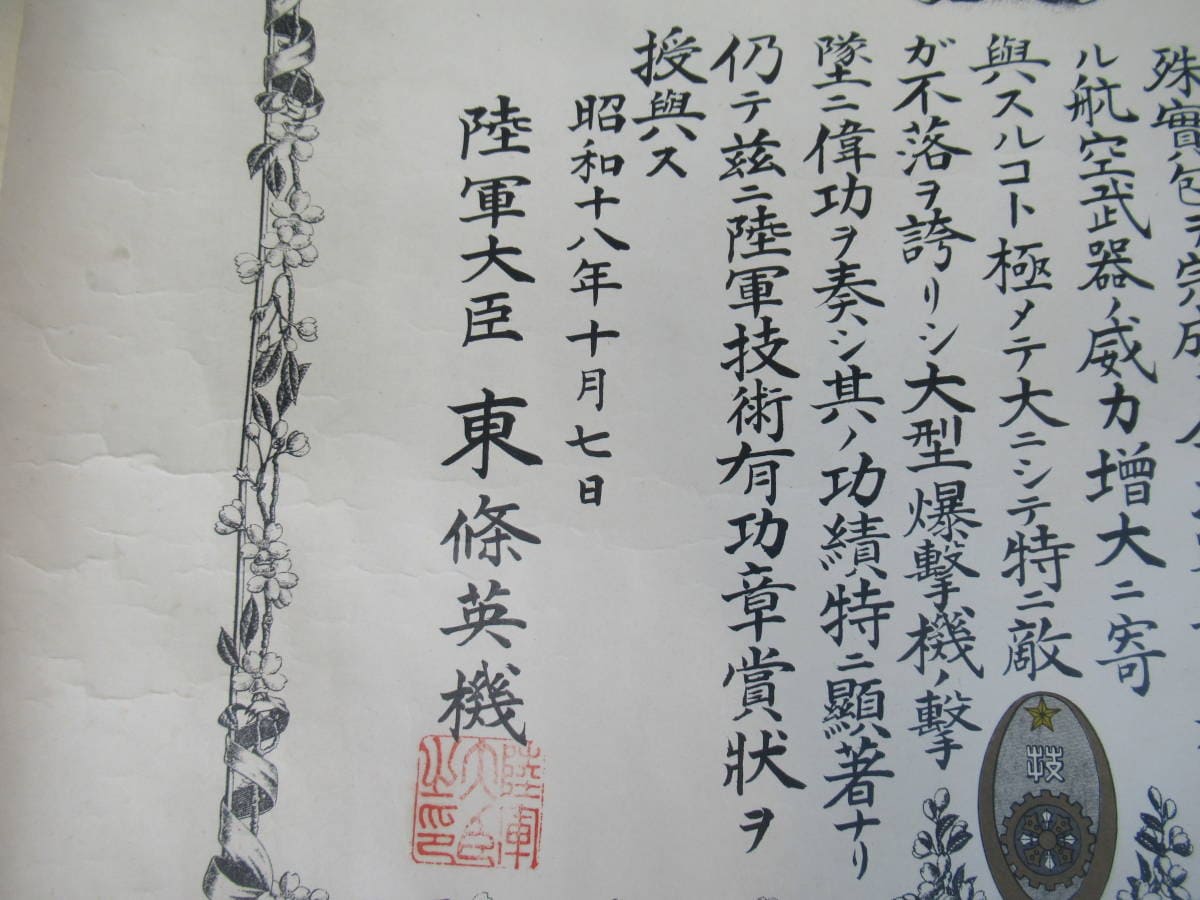 殊實包ヲ完成
ル航空武器ノ威力增大ニ寄
與スルコト極メテ大ニシテ特ニ敵
ガ不落ヲ誇リシ大型爆擊機ノ擊
墜ニ偉功ヲ奏シ其ノ功績特ニ顯著ナリ
仍テ玆ニ陸軍技術有功章賞狀ヲ
授與ス
昭和十八年十月七日
陸軍大臣 東條英機
陸軍
大臣
之印
技